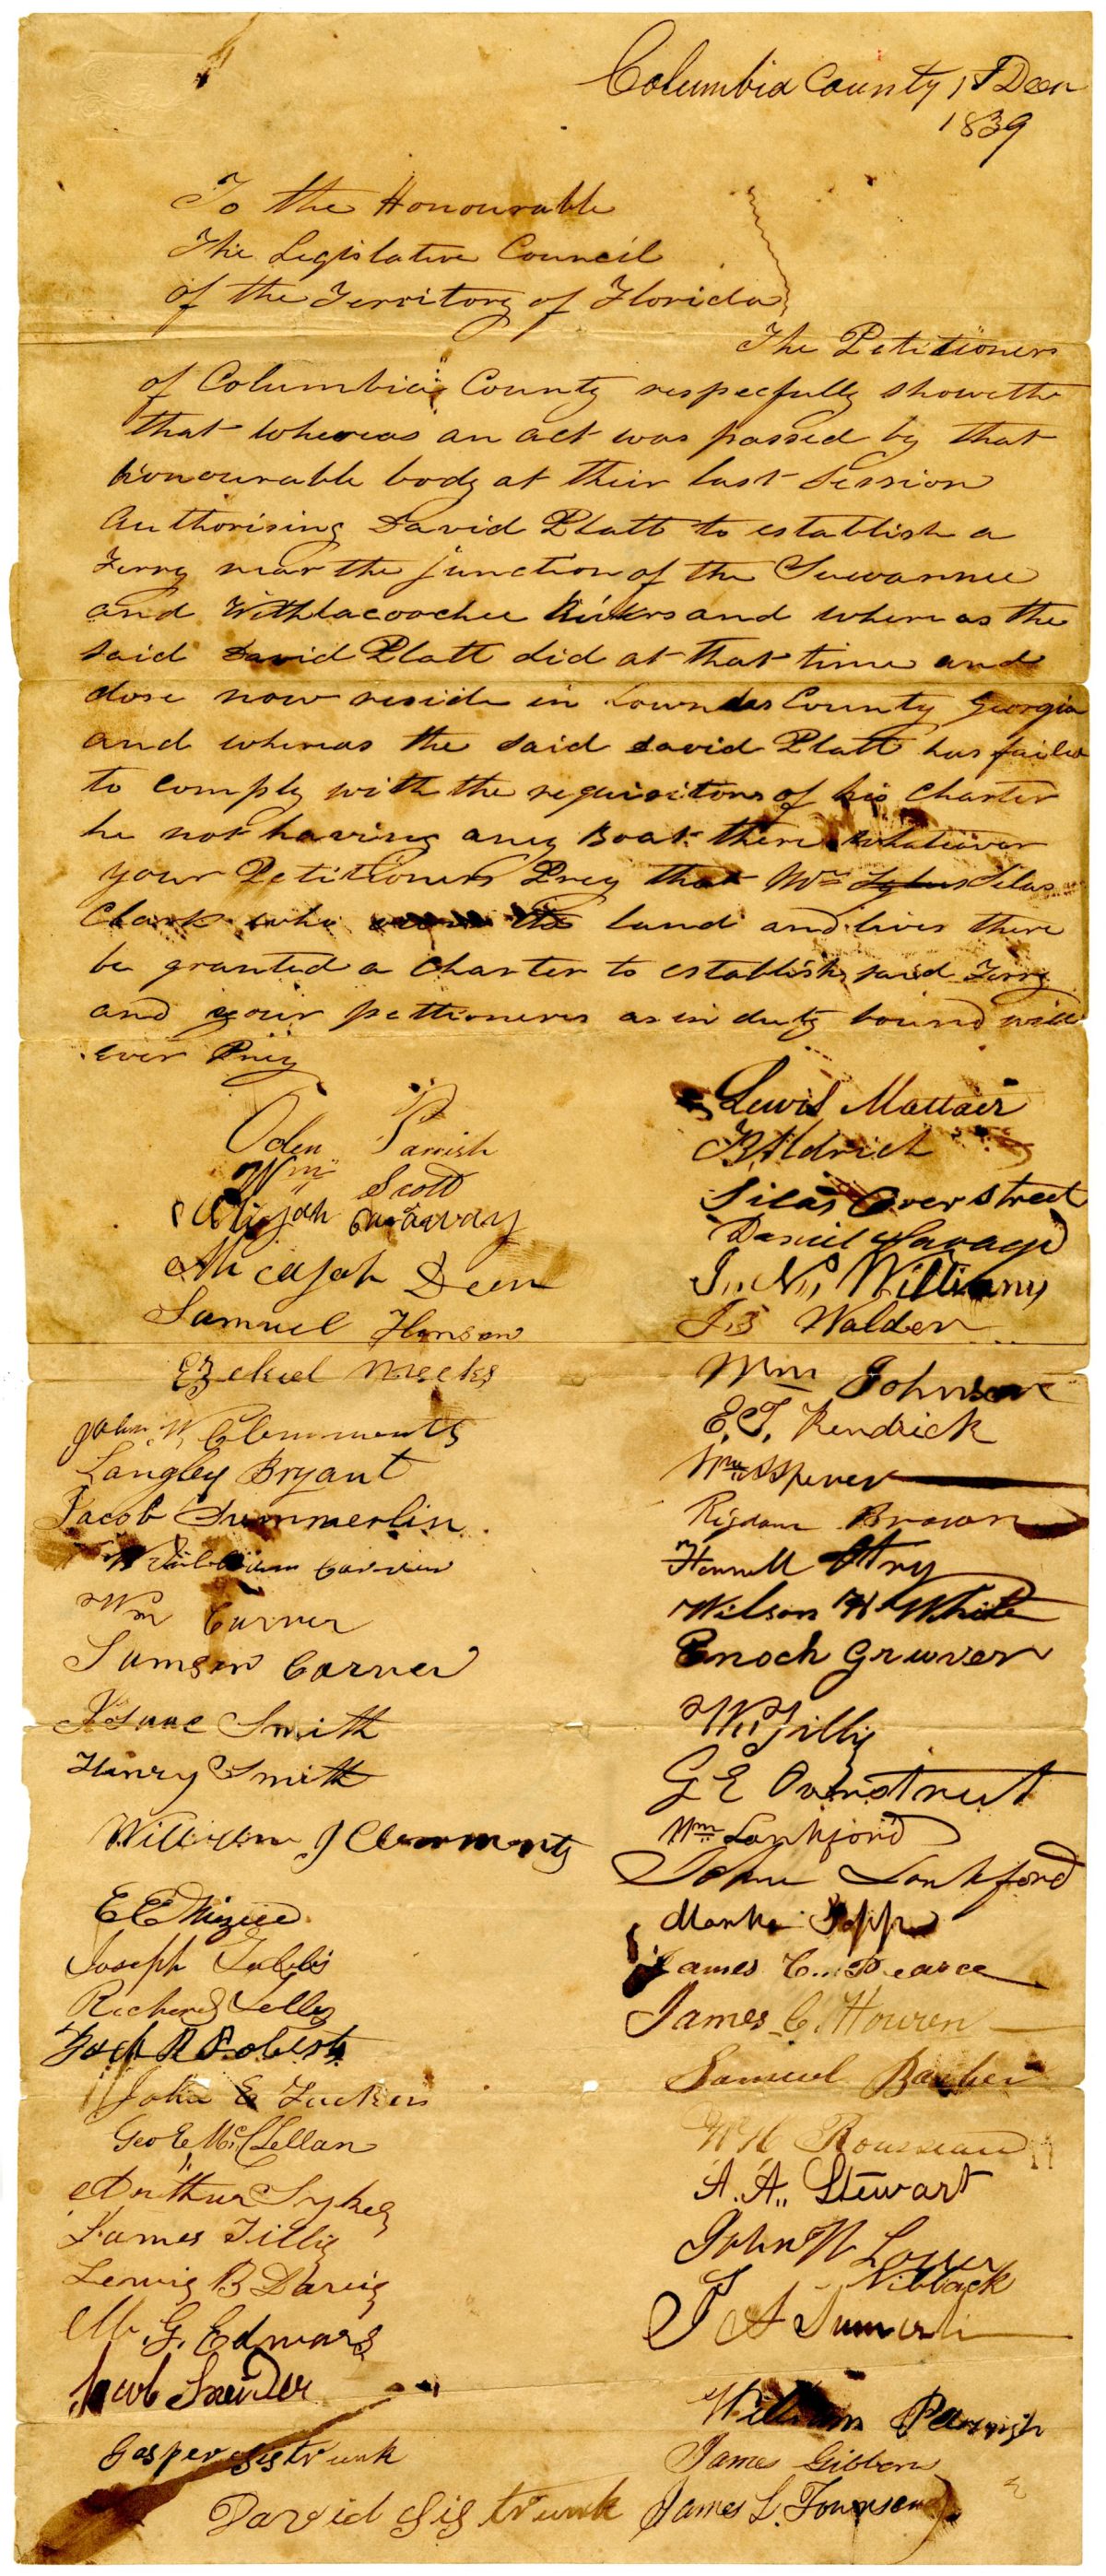 Columbia County 1st Decr
1839
To the Honourable
The Legislative Council
of the Territory of Florida
The Petitioners
of Columbia County respecfully showeth
that whereas an act was passed by that
honourable body at their last Session
Authorising David Platt to establish a
Ferry near the junction of the Suwannee
and Withlacoochee Rivers and where as the
said David Platt did at that time and
dose now reside in Lowndes County Georgia
and whereas the said David Platt has failed
to comply with the requisitions of his Charter
he not having any Boat there whatever
your Petitioners Prey that Mr Silas
Clark who the land and lives there
be granted a Charter to establish said Ferry
and your pettioners as in duty bound will
ever Prey
Oden Parrish
Wm Scott
Elijah Carraway
Micajah Deen
Samuel Hinson
Ezekiel Meeks
John W Clemments
Langley Bryant
Jacob Summerlin
William Carver
Wm Carver
Samson Carver
Isaac Smith
Henry Smith
William J Clemments
E E Mizell
Joseph
Richard
Roberts
John E Tucker
Geo E McClellan
Arthur Sykes
James Tillis
Lewis B Davis
M. G. Edwards
Jacob
Gasper Sistrunk
David Sistrunk
Lewis Mattair
Aldrich
Silas Overstreet
Daniel Savage
J. N. Williams
J B Walden
Wm Johnson
E. T. Kendrick
Wm
Brown
Wilson H White
Enoch
Wm Tillis
G E Overstreet
Wm Lankford
John Lankford
James C. Pearce
James C. Howren
Samuel Barber
W H Rousseau
A. A. Stewart
John W Lower
Niblack
William Parrish
James Gibbons
James L. Townsend